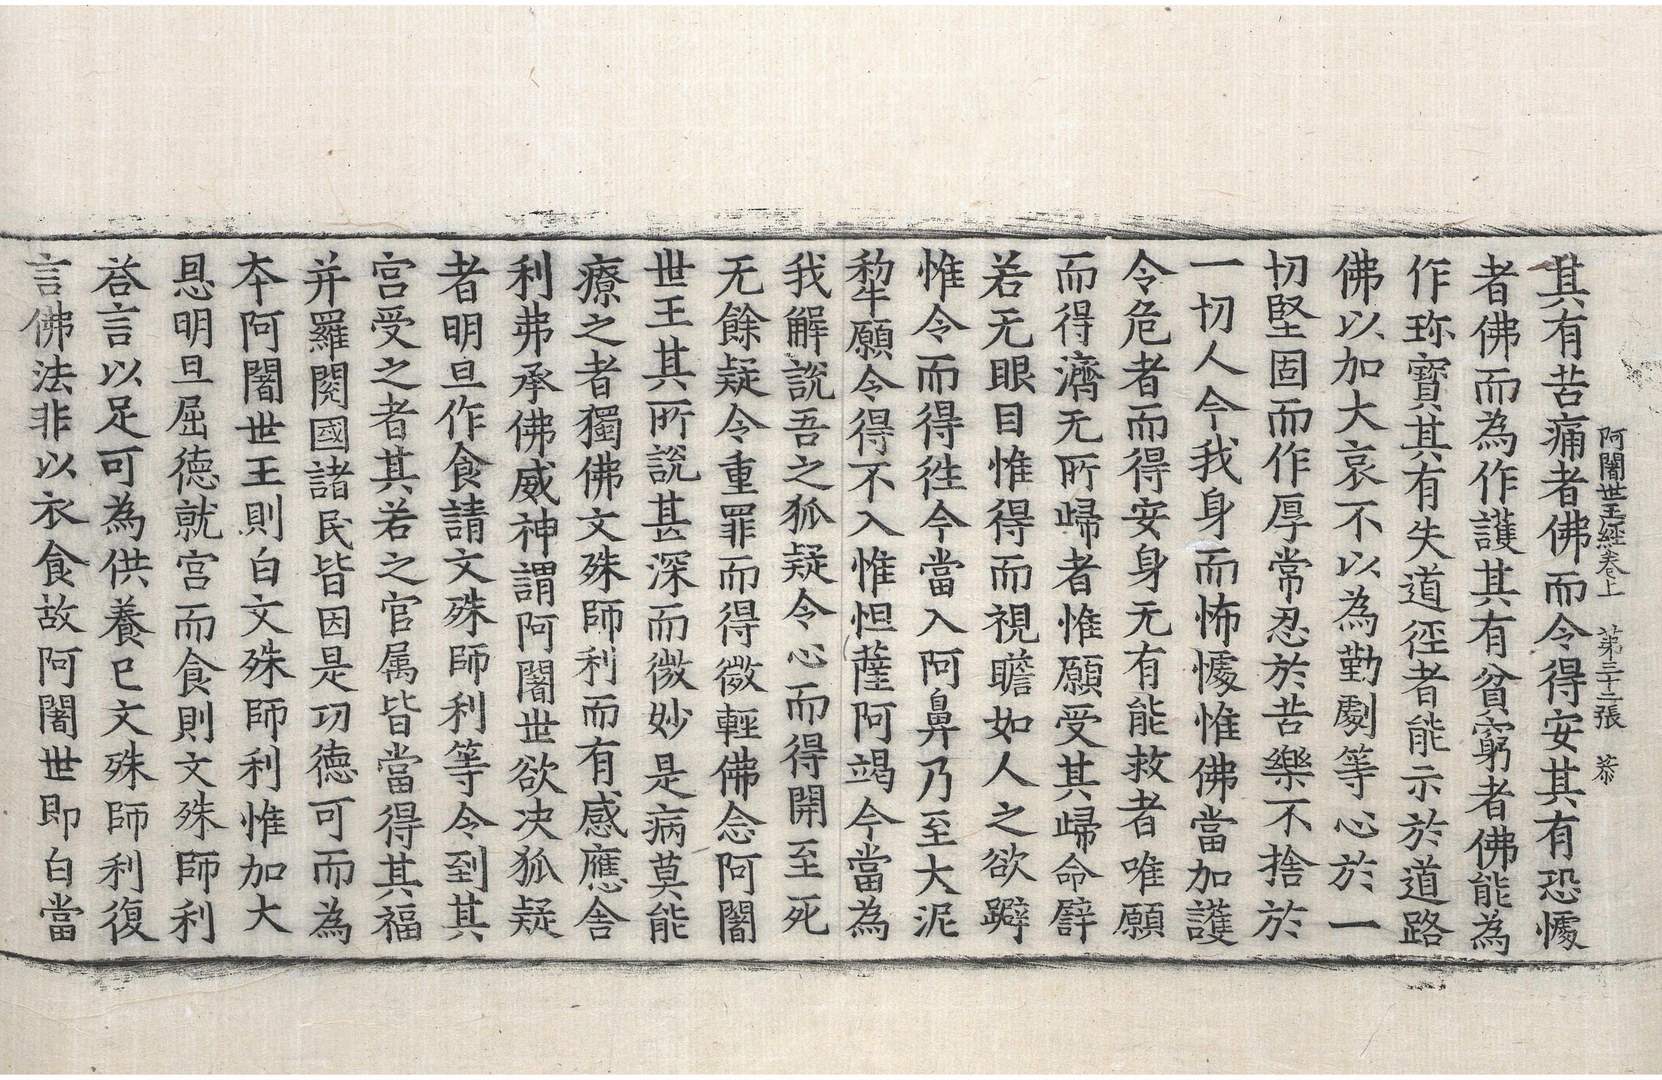 阿闍世王經卷上 第二十二張 恭
其有苦痛者佛而令得安其有恐懅
者佛而為作護其有貧窮者佛能為
作珎寶其有失道徑者能示於道路
佛以加大哀不以為勤劇等心於一
切堅固而作厚常忍於苦樂不捨於
一切人今我身而怖懅惟佛當加護
令危者而得安身无有能救者唯願
而得濟无所歸者惟願受其歸命譬
若无眼目惟得而視瞻如人之欲躃
惟令而得徃今當入阿鼻乃至大泥
犂願令得不入惟怛薩阿竭今當為
我解說吾之狐疑令心而得開至死
无餘疑令重罪而得微輕佛念阿闍
世王其所說甚深而微妙是病莫能
療之者獨佛文殊師利而有感應舎
利弗承佛威神謂阿闍世欲决狐疑
者明旦作食請文殊師利等令到其
宮受之者其若之官属皆當得其福
并羅閱國諸民皆因是功德可而為
本阿闍世王則白文殊師利惟加大
恩明旦屈德就宮而食則文殊師利
荅言以足可為供養已文殊師利復
言佛法非以衣食故阿闍世即白當